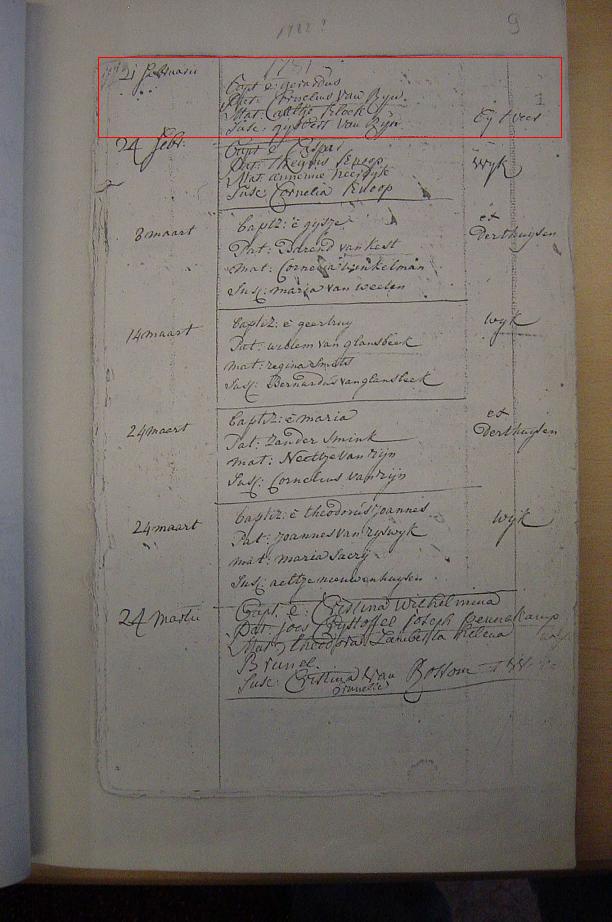 1782?
9
1781
21 februarii
Bapt e: gerardus
Pat: Cornelius Van Ryn
Mat: aeltje Klock
Susc: gysbert van Ryn
Cyt vees
24 febr:
Bapt e Caspar
Pat: Theynis Knoop
Mat annemie heerdyk
Susc Cornelia Knoop
Wyk
8 maart
Baptiz: e gysje
Pat: Barend van kest
mat: Cornelia Winkelman
Susc: maria van weelen
et
Derthuysen
14 maart
baptiz: e geertruy
Pat: willem van glansbeek
mat: regina Smits
Susc: Bernardus van glansbeek
wyk
24 maart
baptiz: e maria
Pat: Zander Smink
mat: Neeltje van rijn
Susc: Cornelius van rijn
et
Derthuysen
24 maart
baptiz: e theodorus joannes
Pat: joannes van ryswyk
mat: maria Sacrij
Susc: aeltje nieuwenhuysen
wyk
24 martii
Bapt. e: Cristina Wilhelmina
Pat: joes Chrystoffel joseph Pennekamp
Mat: theodora Lamberta helena
Brunel.
Susc: Cristina Van Rossom